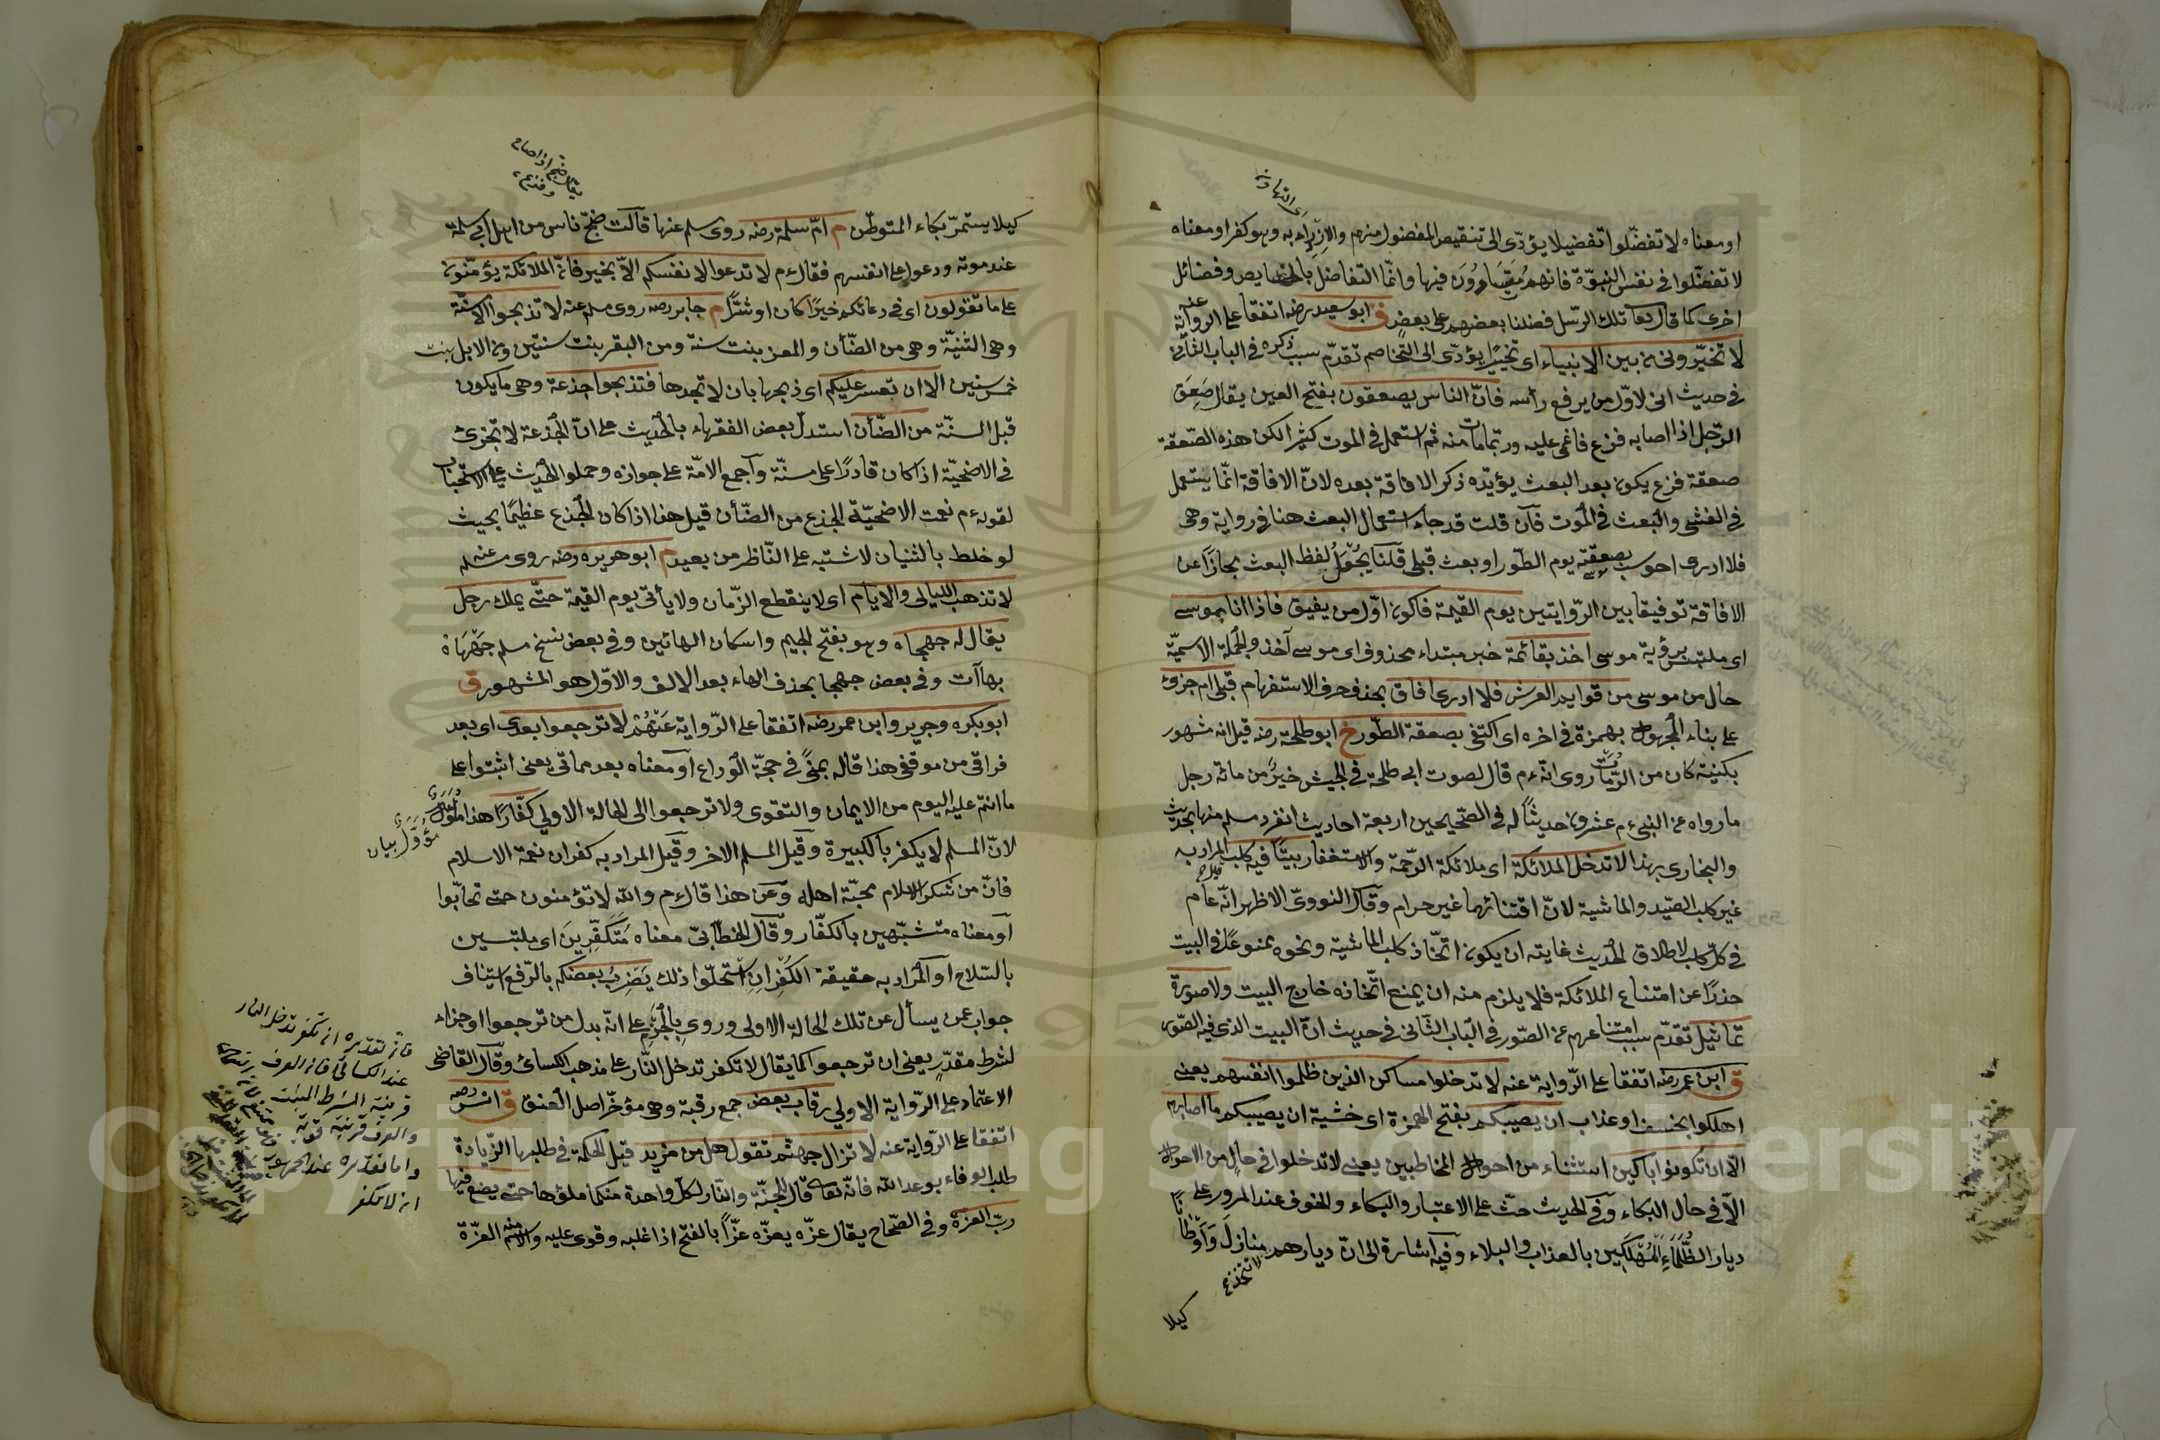 اى التهاون
او معناه لا تفضلوا تفضيلا يؤدى الى تنقيص المفضول منهم والازراء به وهو كفر او معناه
لا تفضلوا فى نفس النبوة فانهم متساوون فيها وانما التفاضل بالخصايص وفضائل
اخرى كما قال تعا تلك الرسل فضلنا بعضهم على بعض ق ابو سعيد رضه اتفقا على الرواية عنه
لا تخيرونى بين الانبياء اى تخييرا يؤدى الى التخاصم تقدم سبب ذكره فى الباب الثانى
فى حديث انى لاول من يرفع رأسه فان الناس يصعقون بفتح العين يقال صعق
الرجل اذا اصابه فزع فاغمى عليه وربما مات منه ثم استعمل فى الموت كثيرا لكن هذه الصعقة
صعقة فزع يكون بعد البعث يؤيده ذكر الافاقة بعده لان الافاقة انما يستعمل
فى الغشى والبعث فى الموت فان قلت قد جاء استعمال البعث هنا فى رواية وهى
فلا ادرى احوسب بصعقته يوم الطور او بعث قبلى قلنا يجعل لفظ البعث مجازا عن
الافاقة توفيقا بين الروايتين يوم القيمة فاكون اول من يفيق فاذا انا بموسى
اى ملتبس برؤية موسى اخذ بقائمة خبر مبتداء محذوف اى موسى آخذ والجملة الاسمية
حال من موسى من قوايد العرش فلا ادرى افاق بحذف حرف الاستفهام قبلى ام جزى
على بناء المجهول بهمزة فى اخره اى اكتفى بصعقة الطور خ ابو طلحة رضه قيل انه شهور
بكنيته كان من الرماة روى انه عم قال لصوت ابى طلحة فى الجيش خير من مائة رجل
ما رواه عن النبى عم عشرون حديثا له فى الصحيحين اربعة احاديث انفرد مسلم منها بحديث
والبخارى بهذا لا تدخل الملائكة اى ملائكة الرحمة والاستغفار بيتا فيه كلب المراد به
غير كلب الصيد والماشية لان اقتنائهما غير حرام وقال النووى الاظهر انه عام
فى كل كلب لاطلاق الحديث غايته ان يكون اتخاذ كلب الماشية ونحوه ممنوعا فى البيت
حذرا عن امتناع الملائكة فلا يلزم منه ان يمنع اتخاذه خارج البيت ولا صورة
تماثيل تقدم سبب امتناعهم عن الصور فى الباب الثانى فى حديث ان البيت الذى فيه الصور
ق ابن عمر رضه اتفقا على الرواية عنه لا تدخلوا مساكن الذين ظلموا انفسهم يعنى
اهلكوا بخسف او عذاب ان يصيبكم بفتح الهمزة اى خشية ان يصيبكم ما اصابهم
الا ان تكونوا باكين استثناء من احوال المخاطبين يعنى لا تدخلوا فى حال من الاحوال
الا فى حال البكاء وفى الحديث حث على الاعتبار والبكاء والخوف عند المرور على
ديار الظلماء المهلكين بالعذاب والبلاء وفيه اشارة الى ان ديارهم منازل واوطانا
لا تتخذ
كيلا
يقال ضج اذا صاح
كيلا يستمر بكاء المتوطن م ام سلمة رضه روى مسلم عنها قالت ضج ناس من اهل ابى سلمة
عند موته ودعوا على انفسهم فقال عم لا تدعوا لانفسكم الا بخير فان الملائكة يؤمنون
على ما تقولون اى فى دعائكم خيرا كان او شرا م جابر رضه روى مسلم عنه لا تذبحوا الا مسنة
وهى الثنية وهى من الضأن والمعز بنت سنة ومن البقر بنت سنتين ومن الابل بنت
خمس سنين الا ان تعسر عليكم اى ذبحها بان لا تجدها فتذبحوا جذعة وهى ما يكون
قبل السنة من الضأن استدل بعض الفقهاء بالحديث على ان الجذعة لا تجزئ
فى الاضحية اذا كان قادرا على مسنة واجمع الامة على جوازه وحملوا الحديث على الاستحباب
لقوله عم نعمت الاضحية الجذع من الضأن قيل هذا اذا كان الجذع عظيما بحيث
لو خلط بالثنيان لاشتبه على الناظر من بعيد م ابو هريره رضه روى مسلم عنه
لا تذهب الليالى والايام اى لا ينقطع الزمان ولا يأتى يوم القيمة حتى يملك رجل
يقال له جهجاه وهو بفتح الجيم واسكان الهائين وفى بعض نسخ مسلم جهجهاه
بهاآت وفى بعض جهجا بحذف الهاء بعد الالف والاول هو المشهور ق
ابو بكره وجرير وابن عمر رضه اتفقا على الرواية عنهم لا ترجعوا بعدى اى بعد
فراقى من موقفى هذا قاله بمنى فى حجة الوداع او معناه بعد مماتى يعنى اثبتوا على
ما انتم عليه اليوم من الايمان والتقوى ولا ترجعوا الى الحالة الاولى كفارا هذا مؤول
مؤول بيان
لان المسلم لا يكفر بالكبيرة وقيل المسلم الاخر وقيل المراد به كفران نعمة الاسلام
فان من شكر الاسلام محبة اهله وعن هذا قال عم والله لا تؤمنون حتى تحابوا
او معناه متشبهين بالكفار وقال الخطابى معناه متكفرين اى ملتبسين
بالسلاح او المراد به حقيقة الكفران استحلوا ذلك يضرب بعضكم بالرفع استيناف
جواب عن يسأل عن تلك الحالة الاولى وروى بالجزم على انه بدل من ترجعوا او جزاء
لشرط مقدر يعنى ان ترجعوا كما يقال لا تكفر تدخل النار على مذهب الكسائى وقال القاضى
الاعتماد على الرواية الاولى رقاب بعض جمع رقبة وهى مؤخر اصل العنق ق انس رضه
اتفقا على الرواية عنه لا تزال جهنم تقول هل من مزيد قيل الحكمة فى طلبها الزيادة
طلب الوفاء بوعد الله فانه تعا قال للجنة والنار لكل واحدة منكما ملؤها حتى يضع فيها
رب العزة وفى الصحاح يقال عزه يعزه عزا بالفتح اذا غلبه وقوى عليه والاسم منه العزة
فان تقديره ان تكفر تدخل النار
عند الكسائى فان العرف
قرينة الشرط المثبت
والعرف قرينة قوية
واما تقديره عند الجمهور
ان لا تكفر
Copyright © King Saud University
1957